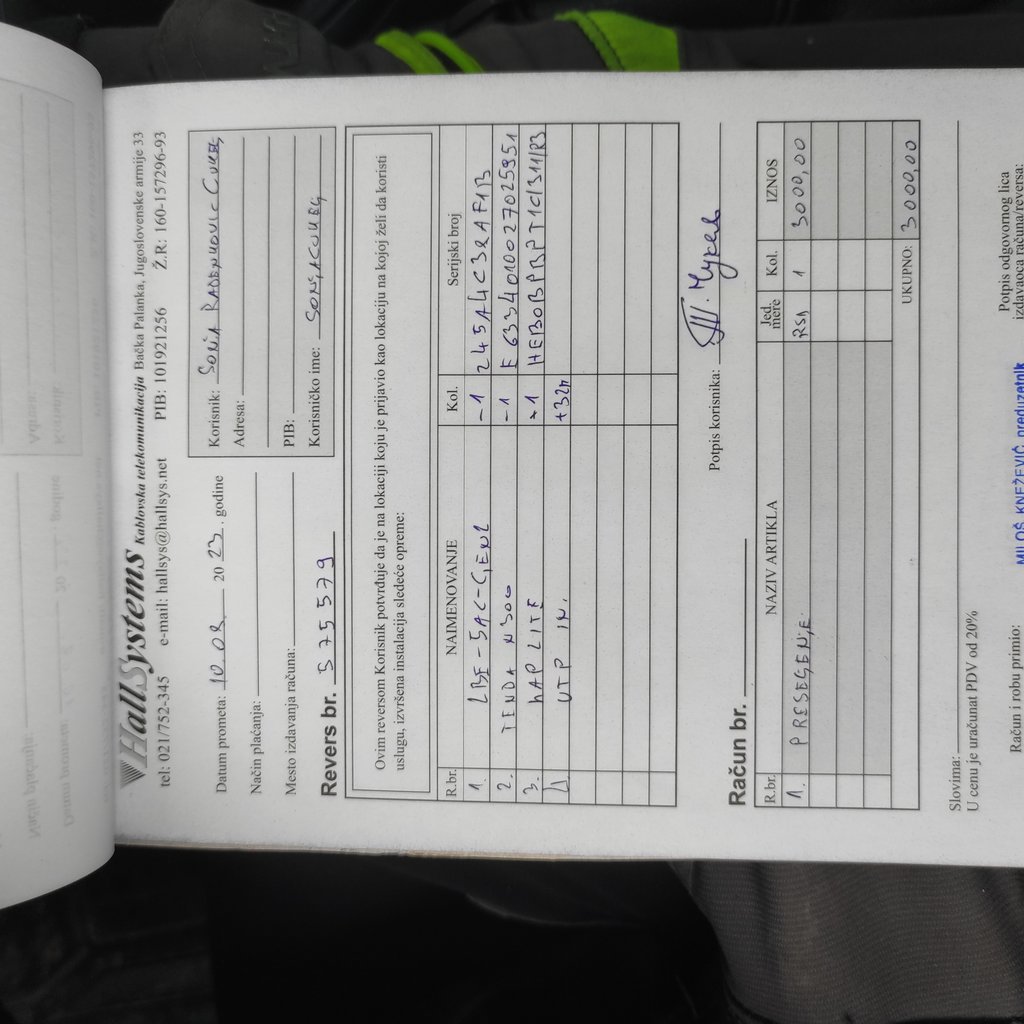 HallSystems Kablovska telekomunikacija Bačka Palanka, Jugoslovenske armije 33
tel: 021/752-345 e-mail: hallsys@hallsys.net PIB: 101921256 Ž.R: 160-157296-93
Datum prometa: 10 02 2023. godine
Način plaćanja:
Mesto izdavanja računa:
Revers br. 375579
Korisnik: SONJA RADENKOVIC
Adresa:
PIB:
Korisničko ime:
Ovim reversom Korisnik potvrđuje da je na lokaciji koju je prijavio kao lokaciju na kojoj želi da koristi
uslugu, izvršena instalacija sledeće opreme:
R.br. NAIMENOVANJE Kol. Serijski broj
1. LBE-5AC-GEN2 -1 245A4C3RAF1B
2. TENDA N300 -1 E6334010027025951
3. hAP LITE -1 HEBOBPBPT1C/311/R3
UTP IN. +32m
Potpis korisnika:
Račun br.
R.br. NAZIV ARTIKLA Jed. mere Kol. IZNOS
1. PRESEGENJE RSD 1 3000,00
UKUPNO: 3000,00
Slovima:
U cenu je uračunat PDV od 20%
Račun i robu primio:
Potpis odgovornog lica
izdavaoca računa/reversa:
MILOŠ KNEŽEVIĆ preduzetnik